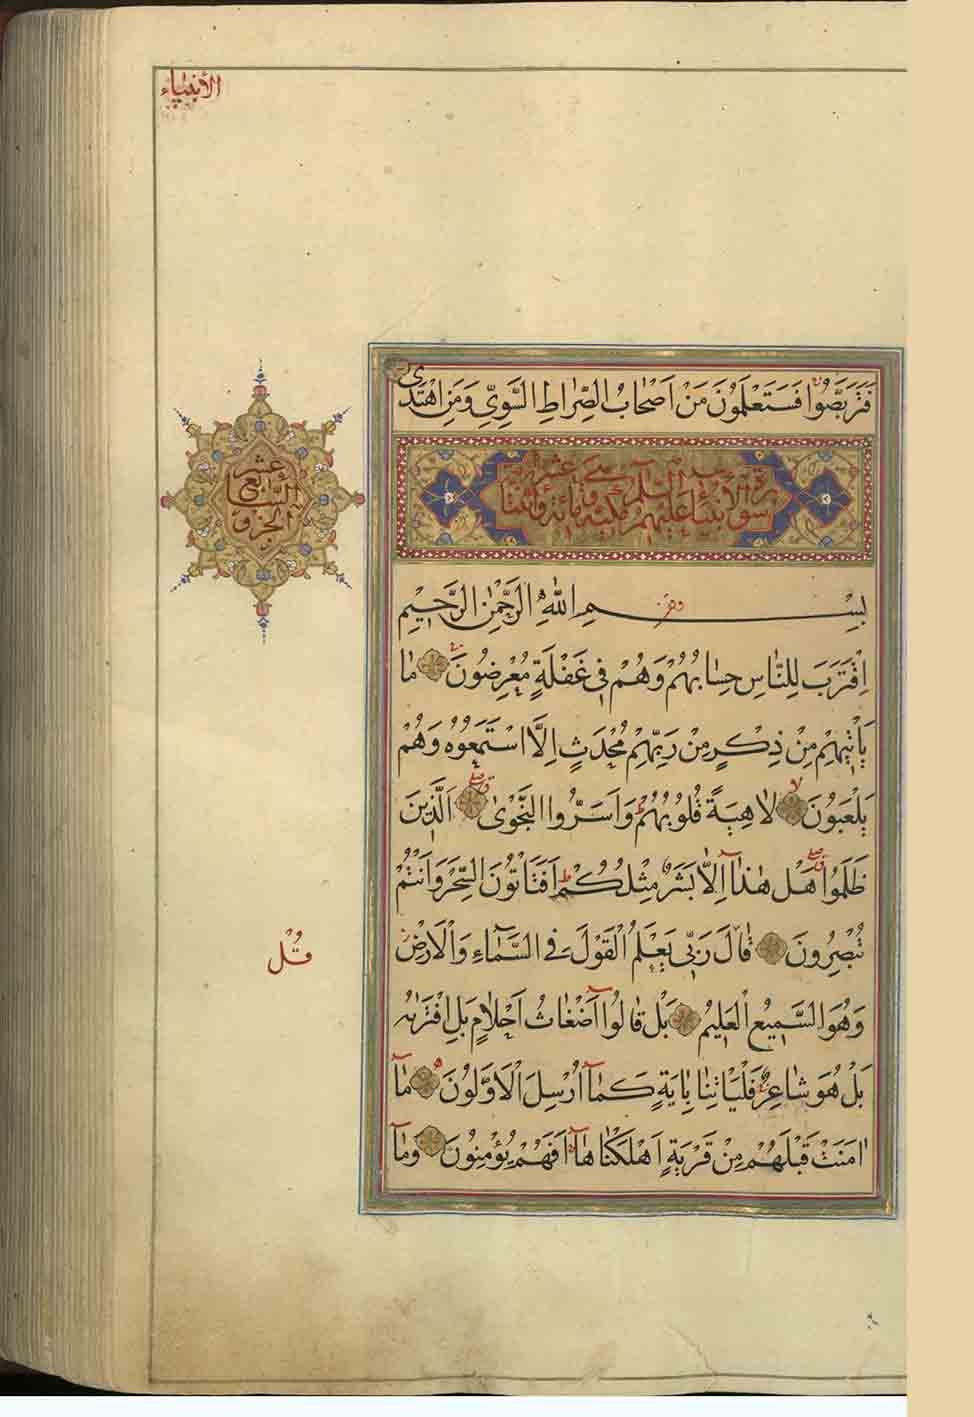 الأنبياء
فَتَرَبَّصُوا فَسَتَعْلَمُونَ مَنْ اَصْحَابُ الصِّرَاطِ السَّوِيِّ وَمَنِ اهْتَدٰى
سورة الانبياء عليهم السلام مكية وهي مائة واثنتا عشر اية
الجزو السابع عشر
بِسْمِ اللّٰهِ الرَّحْمٰنِ الرَّحِيمِ
اِقْتَرَبَ لِلنَّاسِ حِسَابُهُمْ وَهُمْ فِي غَفْلَةٍ مُعْرِضُونَ مَا
يَاْتِيهِمْ مِنْ ذِكْرٍ مِنْ رَبِّهِمْ مُحْدَثٍ اِلَّا اسْتَمَعُوهُ وَهُمْ
يَلْعَبُونَ لَاهِيَةً قُلُوبُهُمْ وَاَسَرُّوا النَّجْوٰى اَلَّذِينَ
ظَلَمُوا هَلْ هٰذَا اِلَّا بَشَرٌ مِثْلُكُمْ اَفَتَاْتُونَ السِّحْرَ وَاَنْتُمْ
تُبْصِرُونَ قَالَ رَبِّي يَعْلَمُ الْقَوْلَ فِي السَّمَاءِ وَالْاَرْضِ
قُلْ
وَهُوَ السَّمِيعُ الْعَلِيمُ بَلْ قَالُوا اَضْغَاثُ اَحْلَامٍ بَلِ افْتَرٰيهُ
بَلْ هُوَ شَاعِرٌ فَلْيَاْتِنَا بِاٰيَةٍ كَمَا اُرْسِلَ الْاَوَّلُونَ مَا
اٰمَنَتْ قَبْلَهُمْ مِنْ قَرْيَةٍ اَهْلَكْنَاهَا اَفَهُمْ يُؤْمِنُونَ وَمَا